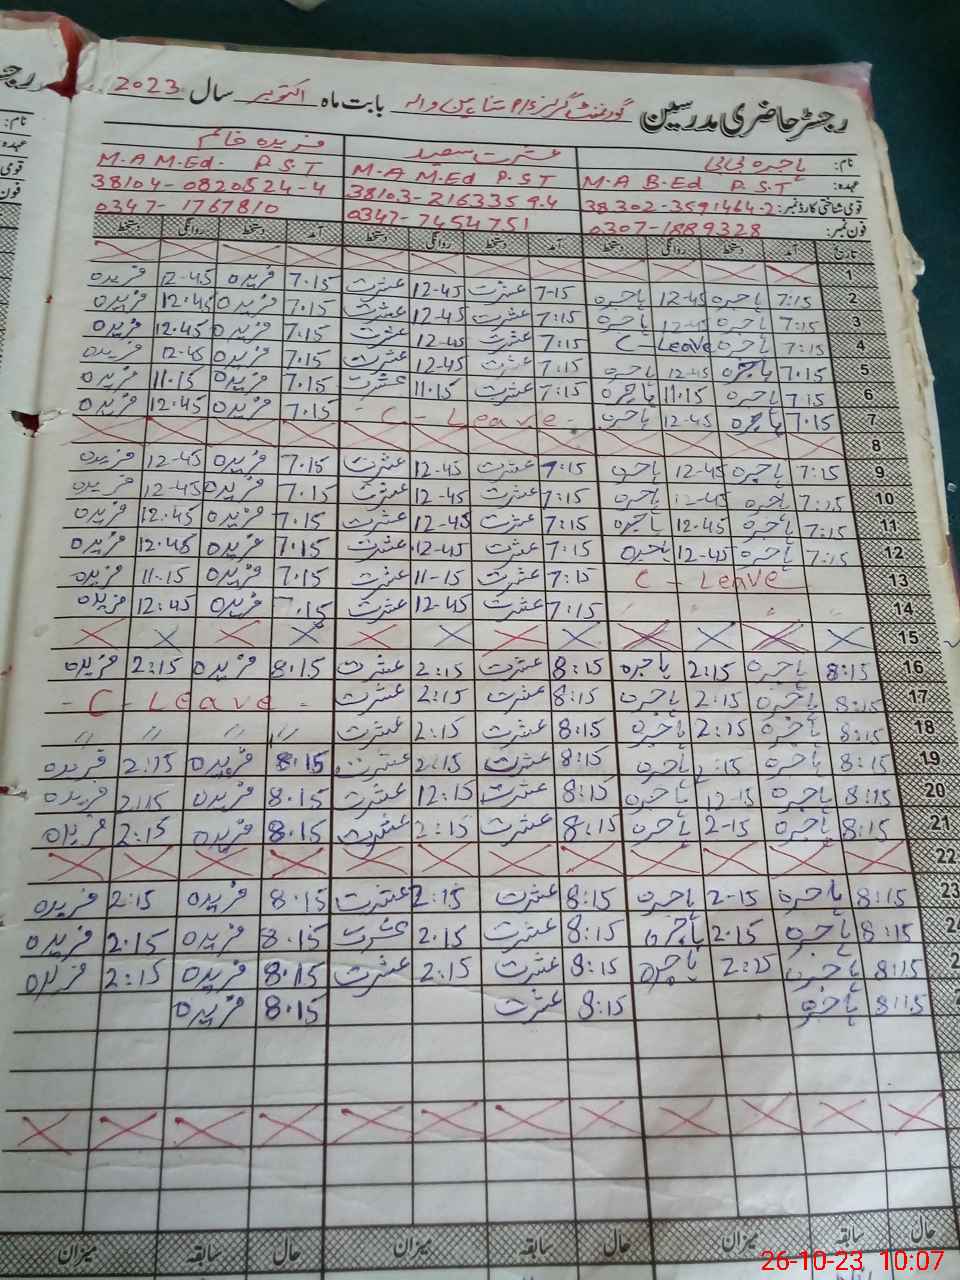 رجسٹر حاضری مدرسین گورنمنٹ گرلز P/S بابت ماہ اکتوبر سال 2023
نام: ہاجرہ بی بی عشرت سعید فریدہ خانم
عہدہ: M.A B.Ed P.S.T M.A M.Ed P.S.T M.A M.Ed. P.S.T
قومی شناختی کارڈ نمبر: 38302-3591464-2 38103-2163359-4 38104-0820524-4
فون نمبر: 0307-1889328 0347-7454751 0347-1767810
تاریخ آمد دستخط روانگی دستخط آمد دستخط روانگی دستخط آمد دستخط روانگی دستخط
1
2 7:15 ہاجرہ 12-45 ہاجرہ 7-15 عشرت 12-45 عشرت 7.15 فریدہ 12-45 فریدہ
3 7:15 ہاجرہ 12-45 ہاجرہ 7:15 عشرت 12-45 عشرت 7.15 فریدہ 12.45 فریدہ
4 7:15 ہاجرہ C-Leave 7:15 عشرت 12-45 عشرت 7.15 فریدہ 12.45 فریدہ
5 7.15 ہاجرہ 12-45 ہاجرہ 7:15 عشرت 12-45 عشرت 7.15 فریدہ 12-45 فریدہ
6 7.15 ہاجرہ 11.15 ہاجرہ 7:15 عشرت 11.15 عشرت 7.15 فریدہ 11.15 فریدہ
7 7.15 ہاجرہ 12-45 ہاجرہ - C - Leave - 7.15 فریدہ 12.45 فریدہ
8
9 7:15 ہاجرہ 12-45 ہاجرہ 7:15 عشرت 12-45 عشرت 7.15 فریدہ 12-45 فریدہ
10 7:15 ہاجرہ 12-45 ہاجرہ 7:15 عشرت 12-45 عشرت 7.15 فریدہ 12-45 فریدہ
11 7:15 ہاجرہ 12.45 ہاجرہ 7:15 عشرت 12-45 عشرت 7.15 فریدہ 12.45 فریدہ
12 7:15 ہاجرہ 12-45 ہاجرہ 7:15 عشرت 12-45 عشرت 7.15 فریدہ 12.45 فریدہ
13 C - Leave 7:15 عشرت 11-15 عشرت 7.15 فریدہ 11.15 فریدہ
14 " " " " 7:15 عشرت 12-45 عشرت 7.15 فریدہ 12:45 فریدہ
15
16 8:15 ہاجرہ 2:15 ہاجرہ 8:15 عشرت 2:15 عشرت 8.15 فریدہ 2:15 فریدہ
17 8:15 ہاجرہ 2:15 ہاجرہ 8:15 عشرت 2:15 عشرت - C - Leave -
18 8:15 ہاجرہ 2:15 ہاجرہ 8:15 عشرت 2:15 عشرت " " " "
19 8:15 ہاجرہ 2:15 ہاجرہ 8:15 عشرت 2:15 عشرت 8.15 فریدہ 2:15 فریدہ
20 8:15 ہاجرہ 12-15 ہاجرہ 8:15 عشرت 12:15 عشرت 8.15 فریدہ 2:15 فریدہ
21 8:15 ہاجرہ 2-15 ہاجرہ 8:15 عشرت 2:15 عشرت 8.15 فریدہ 2:15 فریدہ
22
23 8:15 ہاجرہ 2-15 ہاجرہ 8:15 عشرت 2:15 عشرت 8.15 فریدہ 2:15 فریدہ
8:15 ہاجرہ 2-15 ہاجرہ 8:15 عشرت 2.15 عشرت 8.15 فریدہ 2.15 فریدہ
8:15 ہاجرہ 2:15 ہاجرہ 8:15 عشرت 2:15 عشرت 8.15 فریدہ 2:15 فریدہ
8:15 ہاجرہ 8:15 عشرت 8.15 فریدہ
حال سابقہ میزان حال سابقہ میزان حال سابقہ میزان
26-10-23 10:07